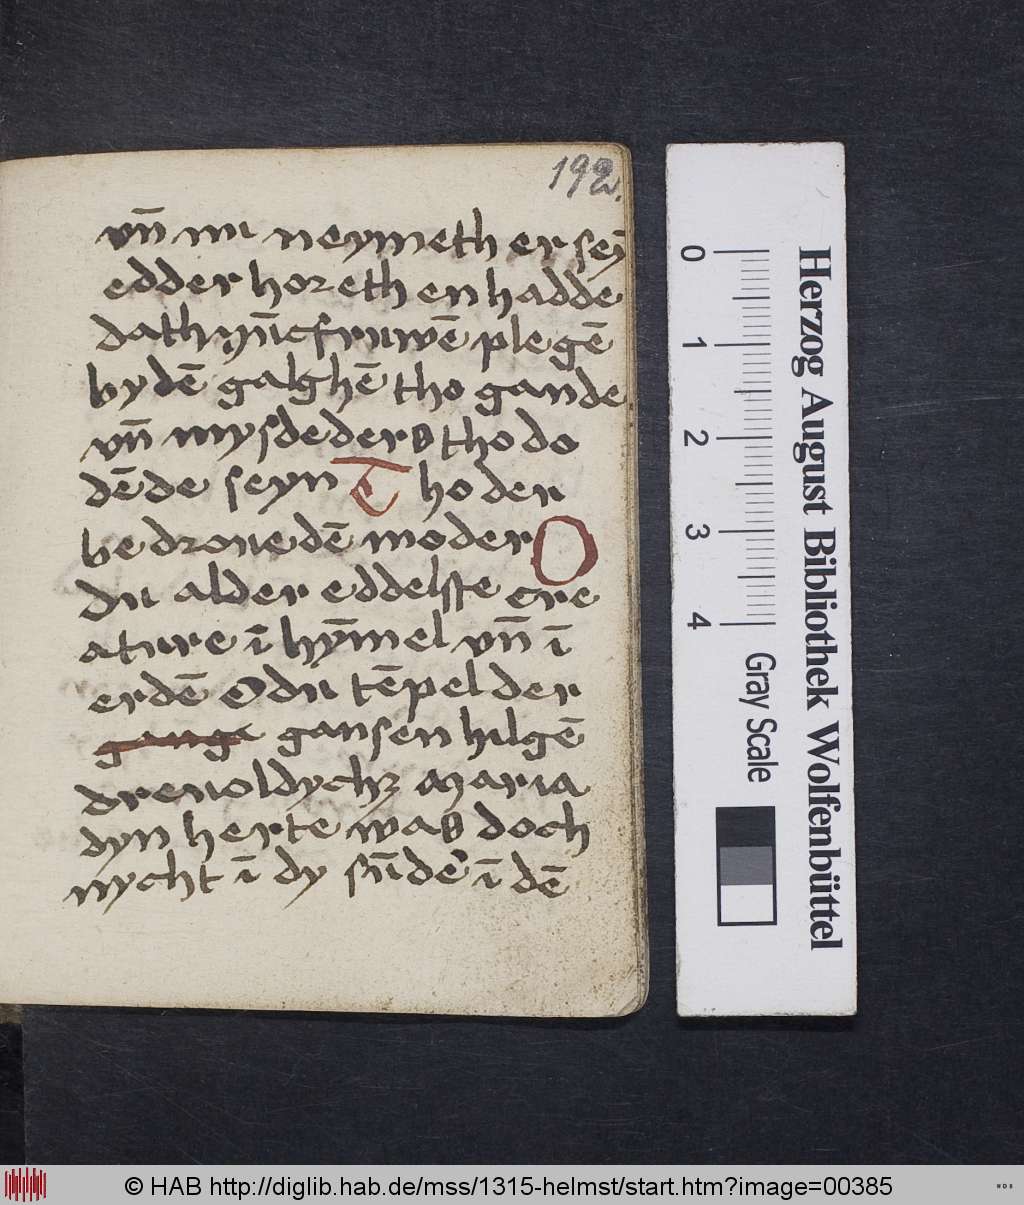 192.
vn̄ nu neymeth er seȳ
edder horeth en hadde
dath yūcfruwē plegē
by dē galghē tho gande
vn̄ mysdeders tho do
dē de seyn Tho der
be droue dē moder O
du alder eddelste cre
ature ī hȳmel vn̄ ī
erdē O du tēpel der
gange gansen hilgē
dreuoldychȝ maria
dyn herte was doch
nycht ī dy sūdē ī dē
Herzog August Bibliothek Wolfenbüttel
0
1
2
3
4
Gray Scale
© HAB http://diglib.hab.de/mss/1315-helmst/start.htm?image=00385